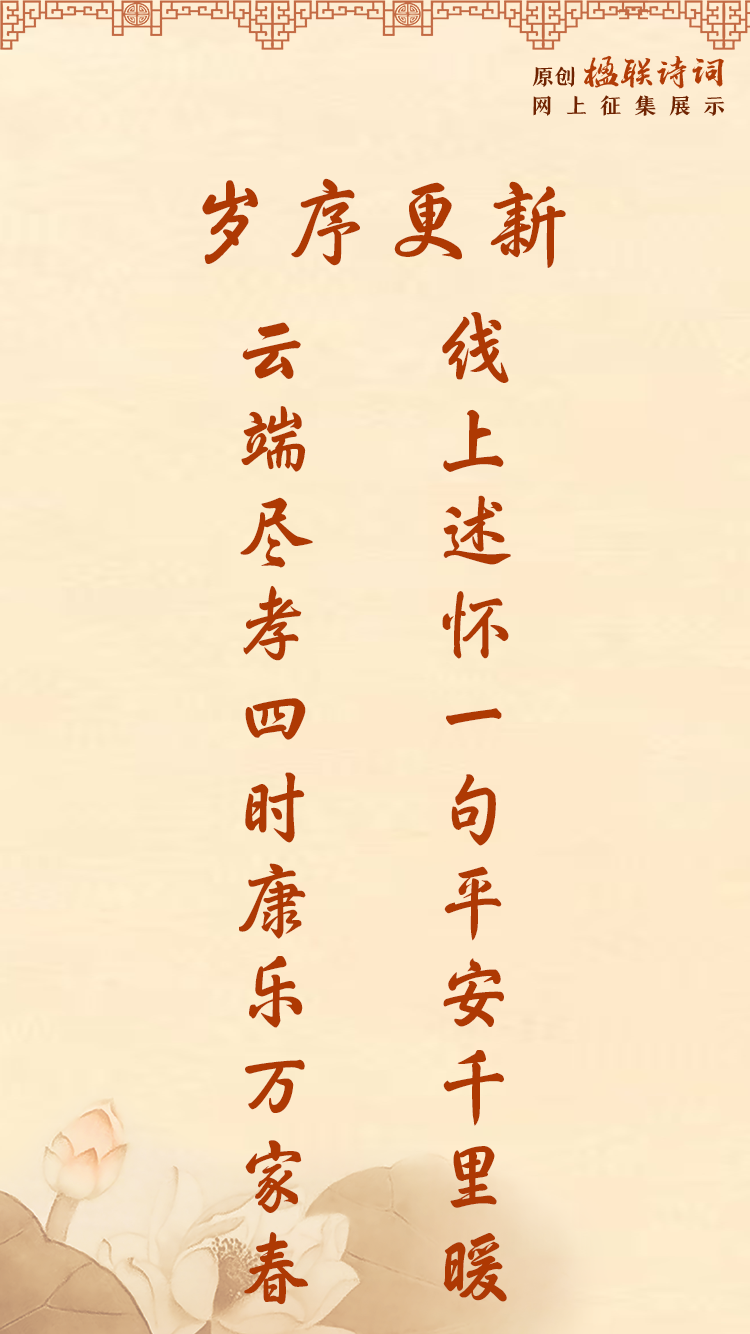 原创 楹联诗词
网上征集展示
岁序更新
线上述怀一句平安千里暖
云端尽孝四时康乐万家春